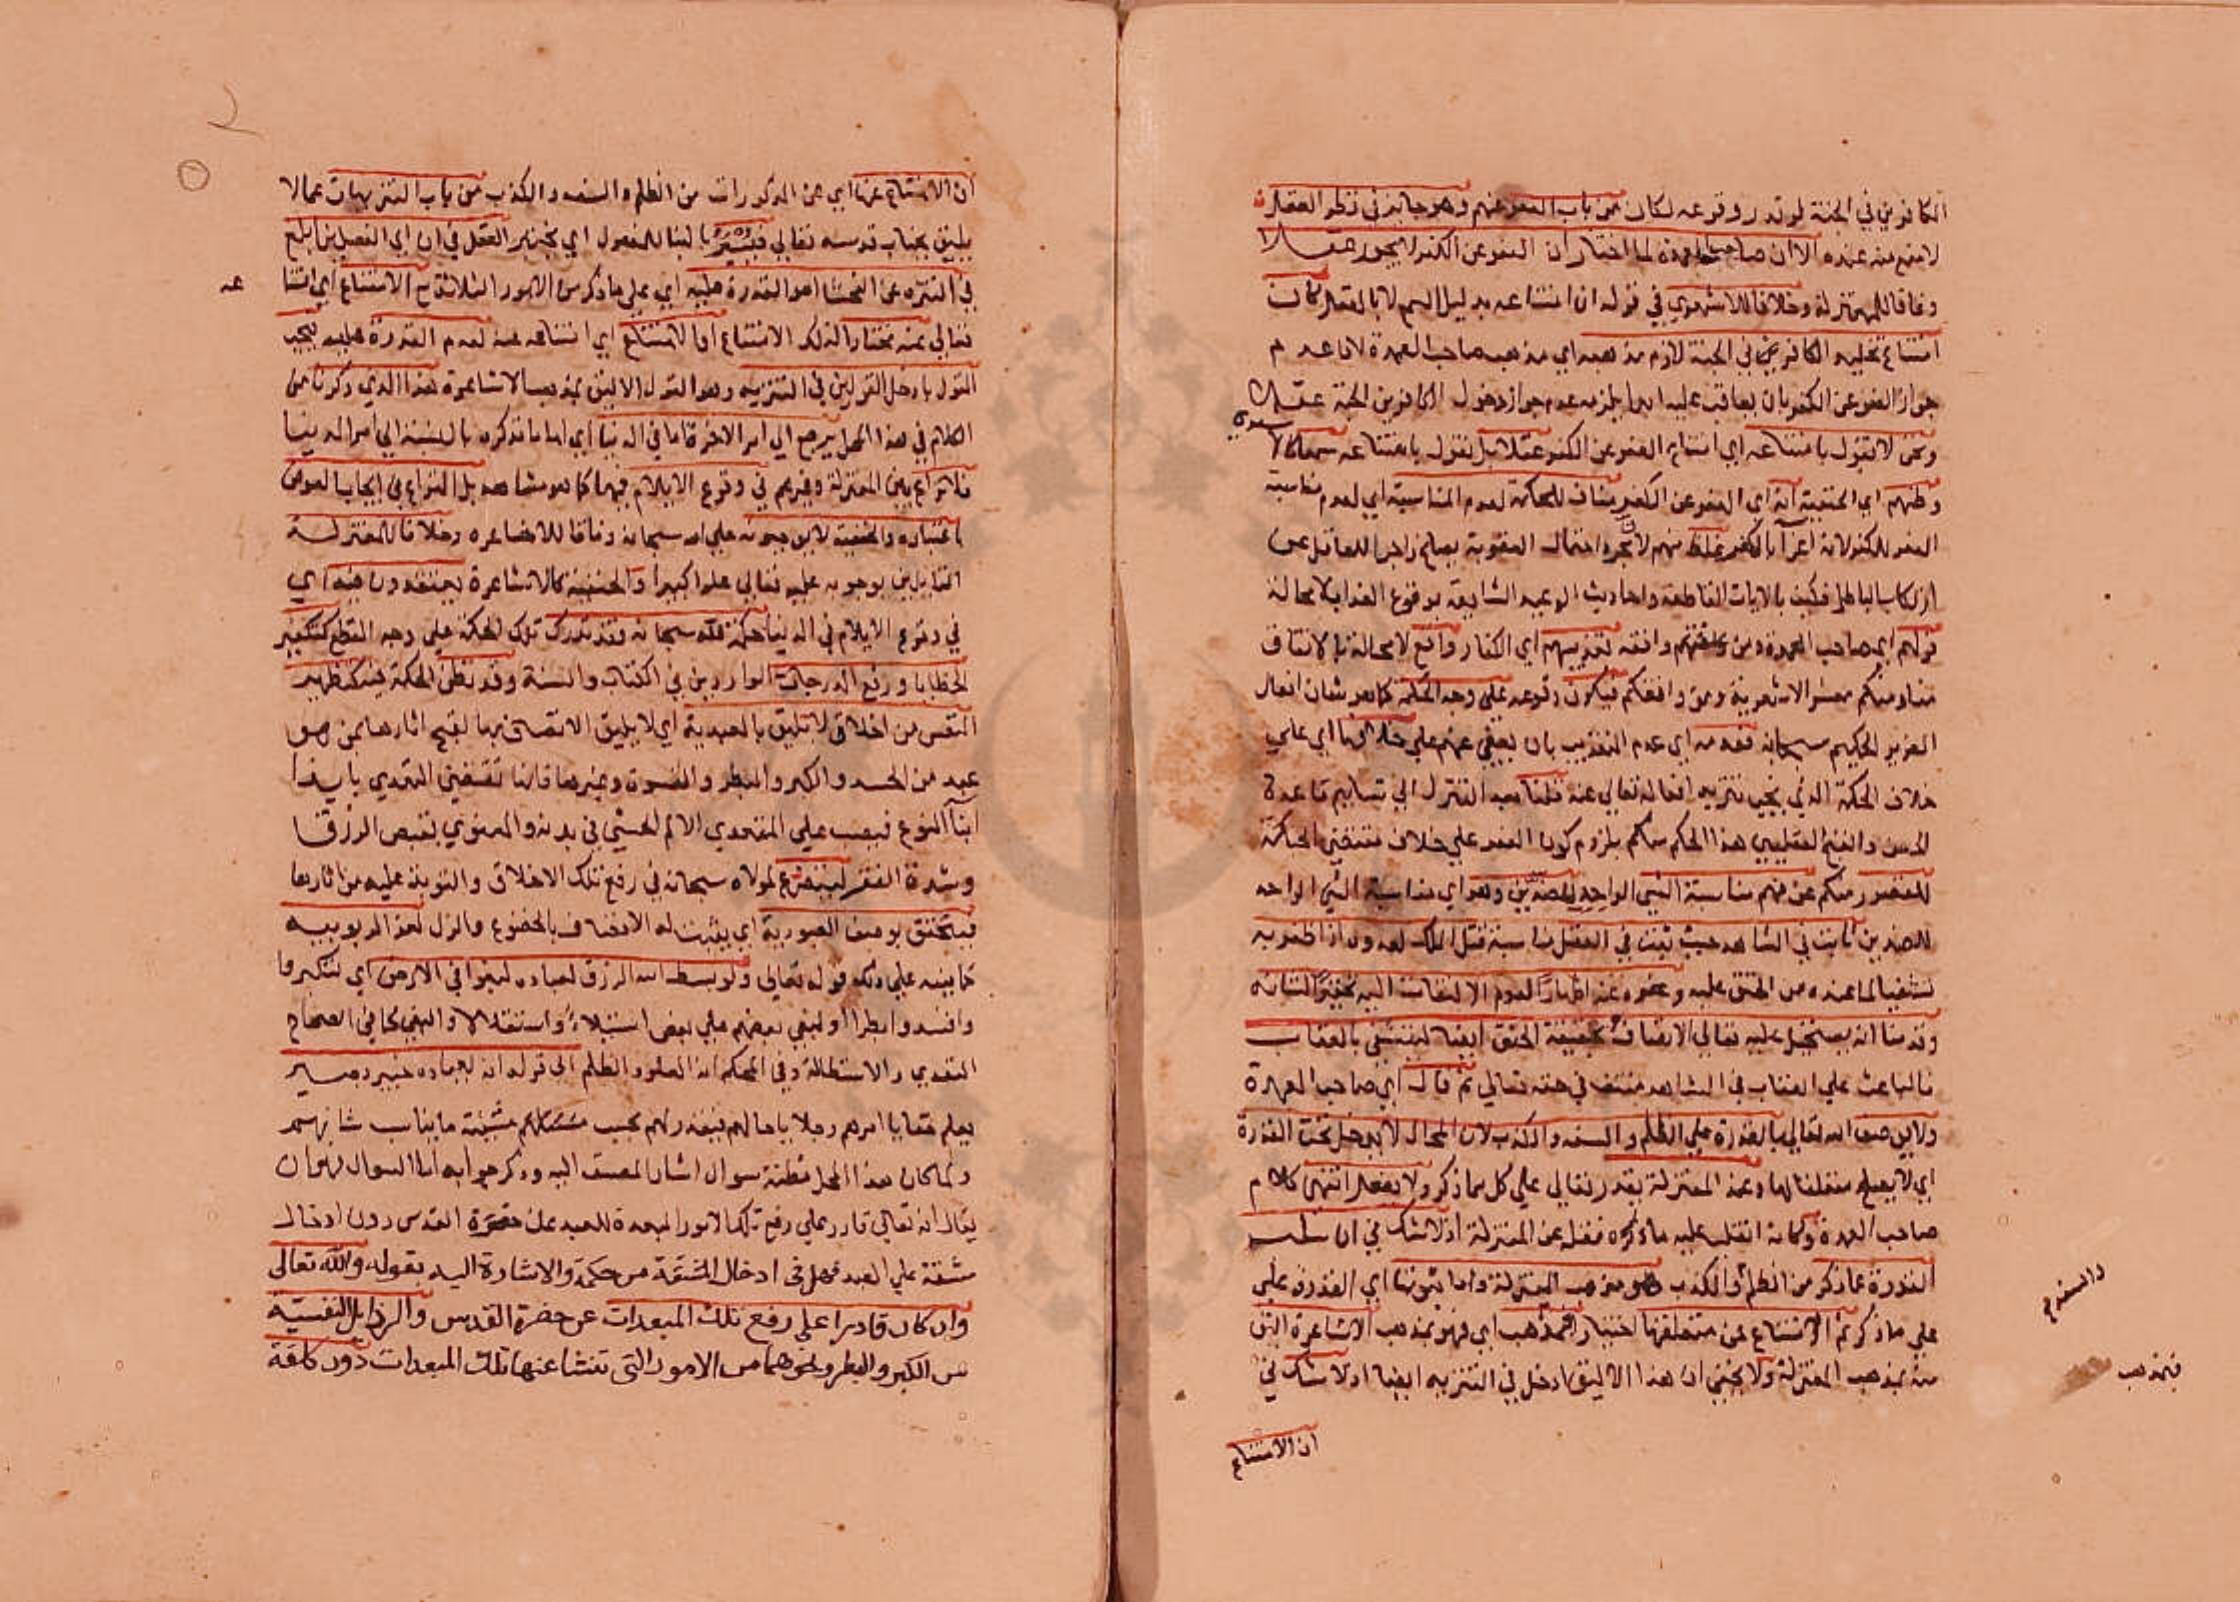 الكافرين في الجنة لو قدر وقوعه لكان من باب العفو عنهم وهو جائز في نظر العقل
لا يمتنع منه عنده الا ان صاحب العمدة لما اختار ان العفو عن الكفر لا يجوز عقلا
وفاقا للمعتزلة وخلافا للاشعري في قوله ان امتناعه بدليل السمع لا بالعقل كان
امتناع تخليد الكافرين في الجنة لازم مذهبه اي مذهب صاحب العمدة لان عدم
جواز العفو عن الكفر بان يعاقب عليه ابدا يلزمه عدم جواز دخول الكافرين الجنة عقلا
ونحن لا نقول بامتناعه اي امتناع العفو عن الكفر عقلا بل نقول بامتناعه سمعا كالا
شعري
وظنهم اي الحنفية انه اي العفو عن الكفر مناف للحكمة لعدم المناسبة اي لعدم مناسبة
العفو للكفر لانه اغراء بالكفر غلط منهم لان مجرد احتمال العقوبة يصلح زاجرا للعاقل عن
ارتكاب الباطل فكيف بالايات القاطعة واحاديث الوعيد الشايعة بوقوع العذاب لا محالة
قولهم اي صاحب العمدة ومن وافقه تعذيبهم اي الكفار واقع لا محالة بالاتفاق
منا ومنكم معشر الاشعرية ومن وافقكم فيكون وقوعه على وجه الحكمة كما هو شان افعال
العزيز الحكيم سبحانه فعدمه اي عدم التعذيب بان يعفى عنهم على خلافها اي على
خلاف الحكمة الذي يجب تنزيه افعاله تعالى عنه قلنا بعد التنزل الى تسليم قاعدة
الحسن والقبح العقليين هذا الحكم منكم بلزوم كون العفو على خلاف مقتضى الحكمة
للقصور منكم عن فهم مناسبة الشي الواحد للضدين وهو اي مناسبة الشي الواحد
للضدين ثابت في الشاهد حيث ثبت في العقل مناسبة قتل الملك لعدوه اذا ظفر به
تشفيا لما عنده من الحنق عليه وعفوه عنه اظهارا لعدم الالتفات اليه تحقيرا لشانه
وقدمنا انه يستحيل عليه تعالى الاتصاف بحقيقة الحنق ايضا ليتشفى بالعقاب
فالباعث على العقاب في الشاهد منتف في حقه تعالى ثم قال اي صاحب العمدة
ولا يوصف الله تعالى بالقدرة على الظلم والسفه والكذب لان المحال لا يدخل تحت القدرة
اي لا يصلح متعلقا لها وعند المعتزلة يقدر تعالى على كل ما ذكر ولا يفعل انتهى كلام
صاحب العمدة وكانه انقلب عليه ما ذكره فنقله عن المعتزلة اذ لا شك في ان سلب
القدرة عما ذكر من الظلم والكذب هو مذهب المعتزلة واما ثبوتها اي القدرة على
والسفه م
على ما ذكر ثم الامتناع عن متعلقها اختيارا فمذهب اي فهو بمذهب الاشاعرة اليق
منه بمذهب المعتزلة ولا يخفى ان هذا الاليق ادخل في التنزيه ايضا اذ لا شك في
فبمذهب
ان الامتناع
ان الامتناع عنها اي عن المذكورات من الظلم والسفه والكذب من باب التنزيهات عما لا
يليق بجناب قدسه تعالى فيسبر بالبنا للمفعول اي يختبر العقل في ان اي الفصلين ابلغ
في التنزه عن الفحشا اهو القدرة عليه اي على ما ذكر من الامور الثلاثة مع الامتناع اي امتنا
عه
تعالى عنه مختارا لذلك الامتناع او الامتناع اي امتناعه عنه لعدم القدرة عليه فيجب
القول بادخل القولين في التنزيه وهو القول الاليق بمذهب الاشاعرة هذا الذي ذكرنا من
الكلام في هذا المحل يرجع الى امر الاخرة اما في الدنيا اي اما ما نذكره بالنسبة الى امر الدنيا
فلا نزاع بين المعتزلة وغيرهم في وقوع الايلام فيها كما هو مشاهد بل النزاع في ايجاب العوض
باعتباره والحنفية لا يوجبونه على الله سبحانه وفاقا للاشاعره وخلافا للمعتزلة
القايلين بوجوبه عليه تعالى علوا كبيرا والحنفية كالاشاعرة يعتقدون فيه اي
في وقوع الايلام في الدنيا حكمة لله سبحانه وقد تدرك تلك الحكمة على وجه القطع كتكفير
الخطايا ورفع الدرجات الواردين في الكتاب والسنة وقد تظن الحكمة فيه كتطهير
النفس من اخلاق لا تليق بالعبدية اي لا يليق الاتصاف بها لقبح اثارها بمن هو
عبد من الحسد والكبر والبطر والقسوة وغيرها فانها تقتضي التعدي بايذا
ابنآ النوع فيصب على المتعدي الالم الحسي في بدنه والمعنوي بنقص الرزق
وشدة الفقر ليتضرع لمولاه سبحانه في رفع تلك الاخلاق والتوبة عليه من اثارها
فيتحقق بوصف العبودية اي يثبت له الاتصاف بالخضوع والذل لعز الربوبيه
كما ينبه على ذلك قوله تعالى ولو بسط الله الرزق لعباده لبغوا في الارض اي لتكبروا
وافسدوا بطرا او لبغى بعضهم على بعض استيلاءً واستعلاء والبغي كما في الصحاح
التعدي والاستطالة وفي المحكم انه العلو والظلم الى قوله انه بعباده خبير بصير
يعلم خفايا امرهم وجلايا حالهم فيقدر لهم بحسب مشيئته ما يناسب شانهم
ولما كان هذا المحل مظنة سوال اشار المصنف اليه وذكر جوابه اما السوال فهو ان
يقال انه تعالى قادر على رفع تلك الامور المبعدة للعبد عن حضرة القدس دون ادخال
مشقة على العبد فهل في ادخال المشقة من حكمة والاشارة اليه بقوله والله تعالى
وان كان قادرا على رفع تلك المبعدات عن حضرة القدس والرذايل النفسية
من الكبر والبطر ونحوهما من الامور التي تنشا عنها تلك المبعدات دون كلفة